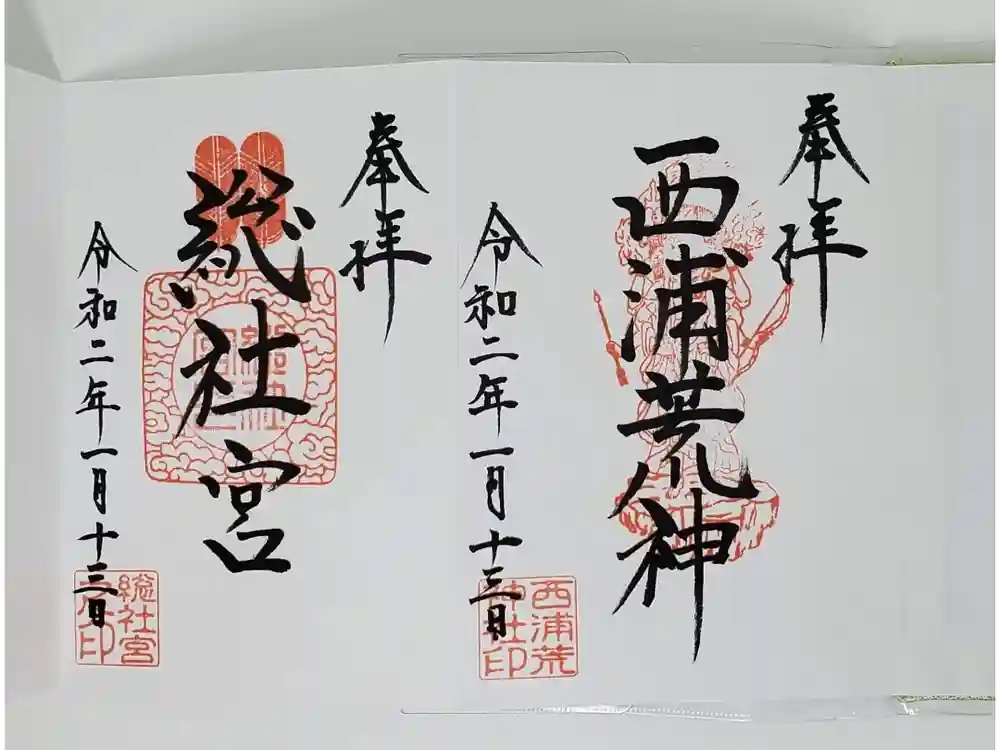 奉拝
西浦荒神
令和二年一月十三日
西浦荒
神社印
奉拝
総社宮
令和二年一月十三日
総社宮